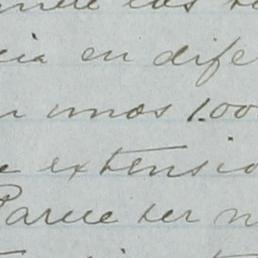 cia en dife
n unos 1.00
e extensio
Parece ser n